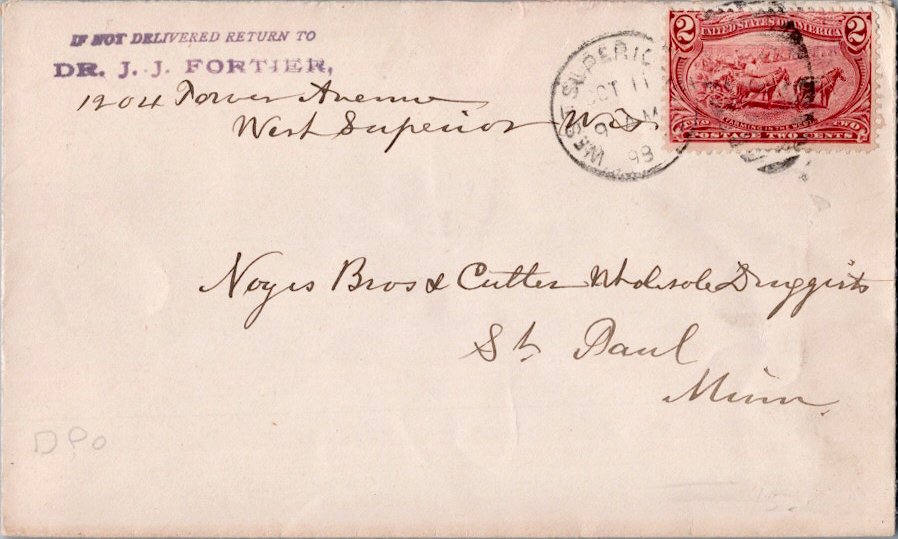 IF NOT DELIVERED RETURN TO
DR. J. J. FORTIER,
1204 Tower Avenue
West Superior Wis.
WEST SUPERIO
OCT 11
9 AM
98
2 UNITED STATES OF AMERICA 2
FARMING IN THE WEST
TWO POSTAGE TWO CENTS TWO
Noyes Bros & Cutter Wholesale Druggists
St. Paul
Minn.
DPO